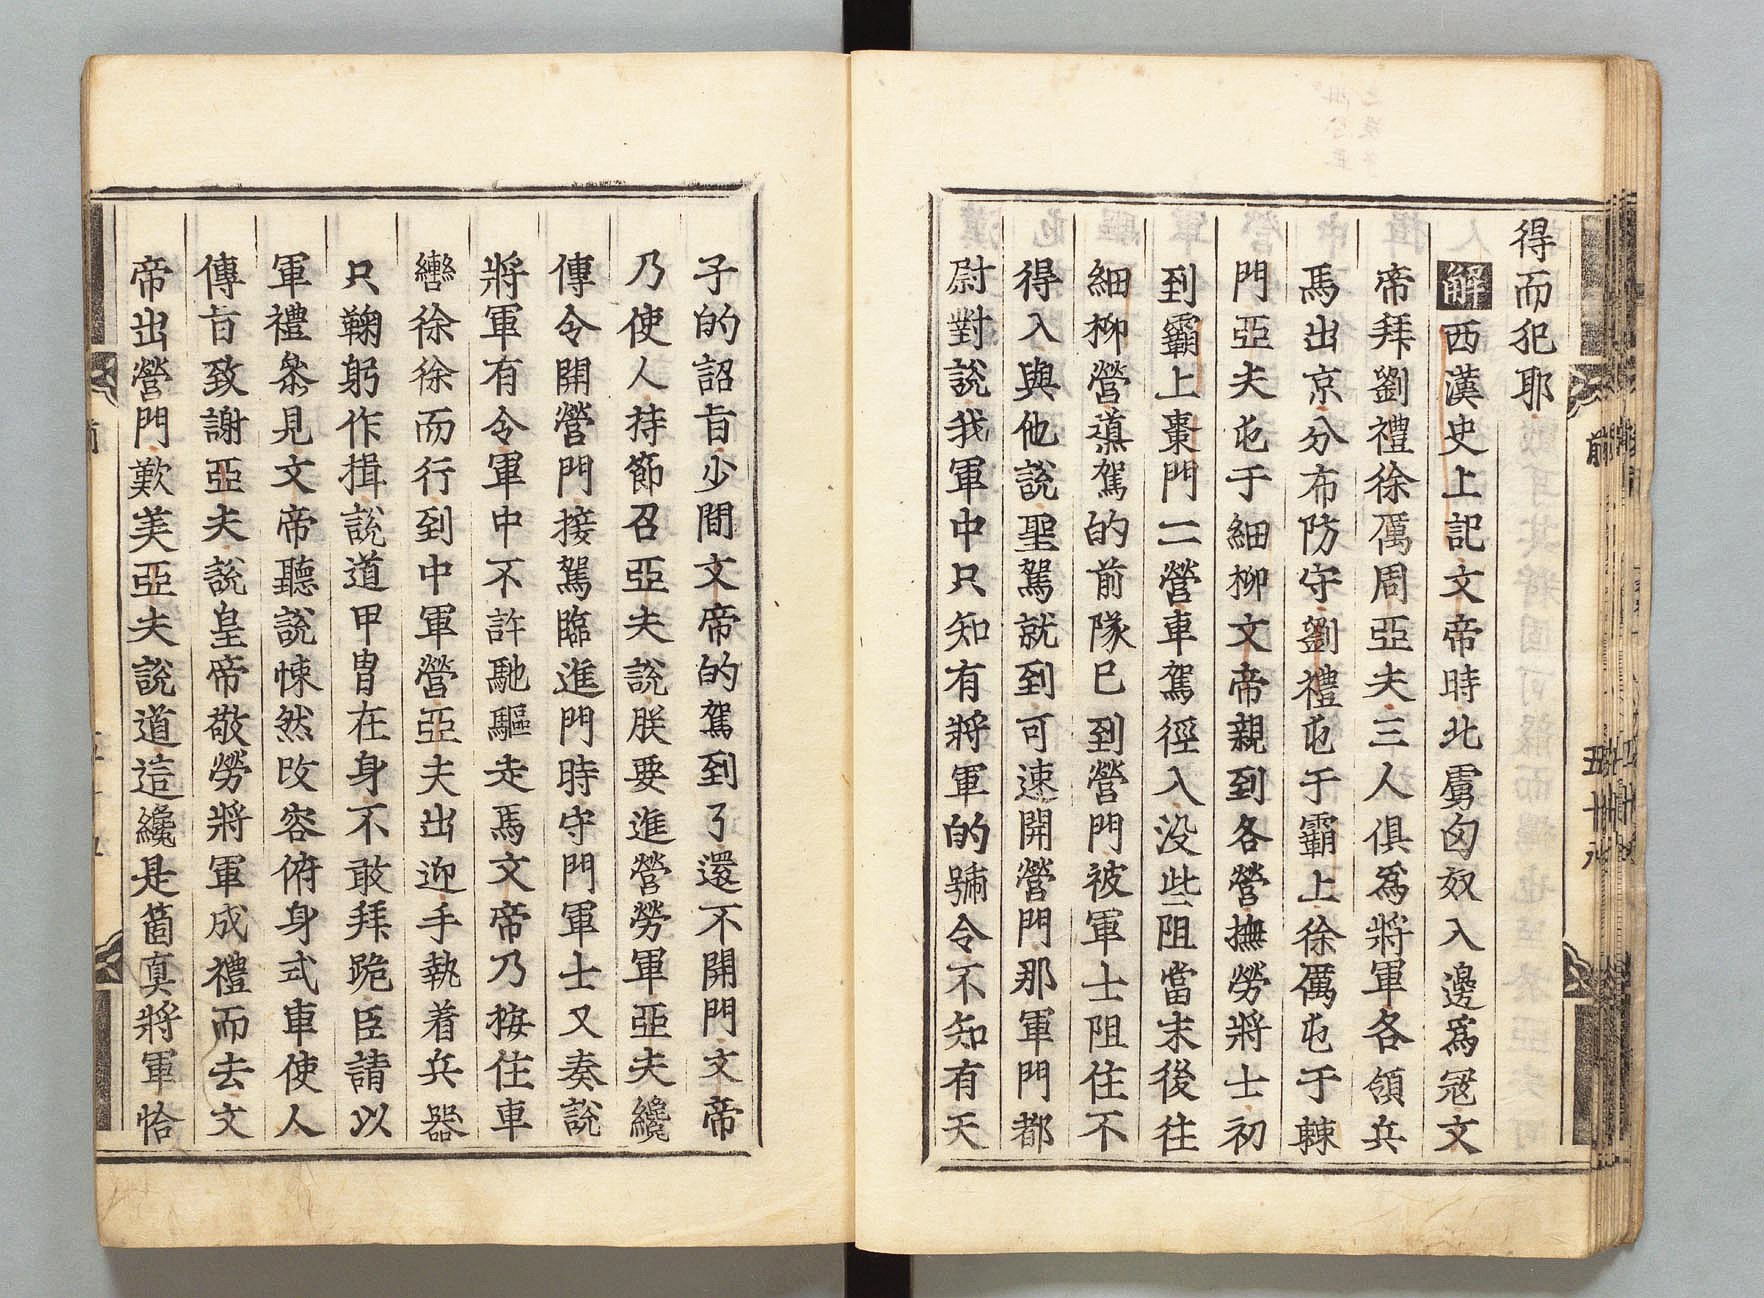 得而犯耶
解西漢史上記文帝時北虜匈奴入邊爲冦文
帝拜劉禮徐厲周亞夫三人俱爲將軍各領兵
馬出京分布防守劉禮屯于霸上徐厲屯于棘
門亞夫屯于細柳文帝親到各營撫勞將士初
到霸上棗門二營車駕徑入没些阻當末後往
細柳營導駕的前隊已到營門被軍士阻住不
得入與他說聖駕就到可速開營門那軍門都
尉對說我軍中只知有將軍的號令不知有天
子的詔旨少間文帝的駕到了還不開門文帝
乃使人持節召亞夫說朕要進營勞軍亞夫纔
傳令開營門接駕臨進門時守門軍士又奏說
將軍有令軍中不許馳驅走馬文帝乃按住車
轡徐徐而行到中軍營亞夫出迎手執着兵器
只鞠躬作揖說道甲冑在身不敢拜跪臣請以
軍禮叅見文帝聽說悚然改容俯身式車使人
傳旨致謝亞夫說皇帝敬勞將軍成禮而去文
帝出營門歎美亞夫說道這纔是箇真將軍恰